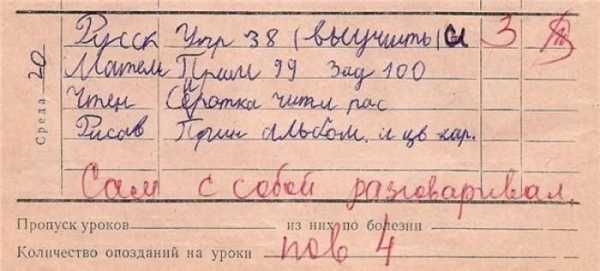 Среда 20
Русск Упр 38 (выучить) 3
Матем Прим 99 Зад 100
Чтен читать рас
Рисов Прин альбом. и цв кар.
Сам с собой разговаривал.
Пропуск уроков из них по болезни
Количество опозданий на уроки пов 4